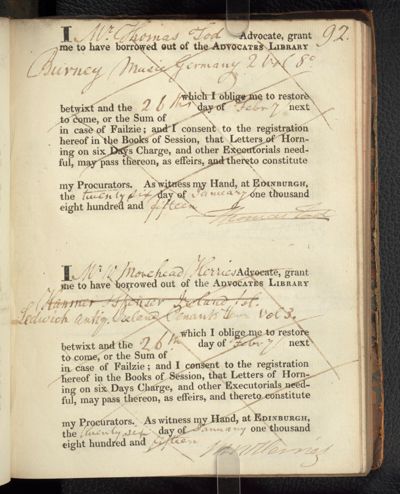 92.
I Mr Thomas Tod Advocate, grant
me to have borrowed out of the ADVOCATES LIBRARY
Burney Music Germany 2 vol 8o
which I oblige me to restore
betwixt and the 26th day of Febry next
to come, or the Sum of
in case of Failzie; and I consent to the registration
hereof in the Books of Session, that Letters of Horn-
ing on six Days Charge, and other Executorials need-
ful, may pass thereon, as effeirs, and thereto constitute
my Procurators. As witness my Hand, at EDINBURGH,
the twenty six day of January one thousand
eight hundred and fifteen
Thomas Tod
I Mr W Morehead Herries Advocate, grant
me to have borrowed out of the ADVOCATES LIBRARY
Hanmer & Spenser Ireland 1st.
Ledwich Antiq. Ireland Tenants vol 3.
which I oblige me to restore
betwixt and the 26th day of Febry next
to come, or the Sum of
in case of Failzie; and I consent to the registration
hereof in the Books of Session, that Letters of Horn-
ing on six Days Charge, and other Executorials need-
ful, may pass thereon, as effeirs, and thereto constitute
my Procurators. As witness my Hand, at EDINBURGH,
the twenty six day of January one thousand
eight hundred and fifteen
Herries